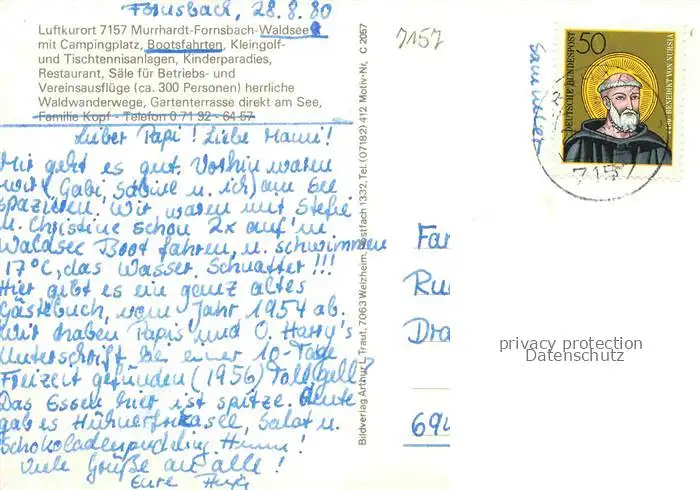 Fornsbach, 28.8.80
Luftkurort 7157 Murrhardt-Fornsbach-Waldsee
mit Campingplatz, Bootsfahrten, Kleingolf-
und Tischtennisanlagen, Kinderparadies,
Restaurant, Säle für Betriebs- und
Vereinsausflüge (ca. 300 Personen) herrliche
Waldwanderwege, Gartenterrasse direkt am See,
Familie Kopf - Telefon 0 71 92 - 64 57
Lieber Papi! Liebe Mami!
Mir geht es gut. Vorhin waren
wir (Gabi, Sabine u. ich) am See
spazieren. Wir waren mit Stefie
u. Christine schon 2x auf'm
Waldsee Boot fahren, u. schwimmen
17°C, das Wasser. Schnatter!!!
Hier gibt es ein ganz altes
Gästebuch, vom Jahr 1954 ab.
Wir haben Papis und O. Harry's
Unterschrift bei einer 10-Tage
Freizeit gefunden (1956) Toll gell?
Das Essen hier ist spitze. Heute
gab es Hühnerfrikasee, Salat u.
Schokoladenpudding. Hmm!
Viele Grüße an alle!
Eure
Bildverlag Arthur F. Traut, 7063 Welzheim, Postfach 1332, Tel. (07182) 412 Motiv-Nr. C 2057
7157
DEUTSCHE BUNDESPOST
50
BENEDIKT VON NURSIA
7157
Fam
Ru
Dra
694
privacy protection
Datenschutz